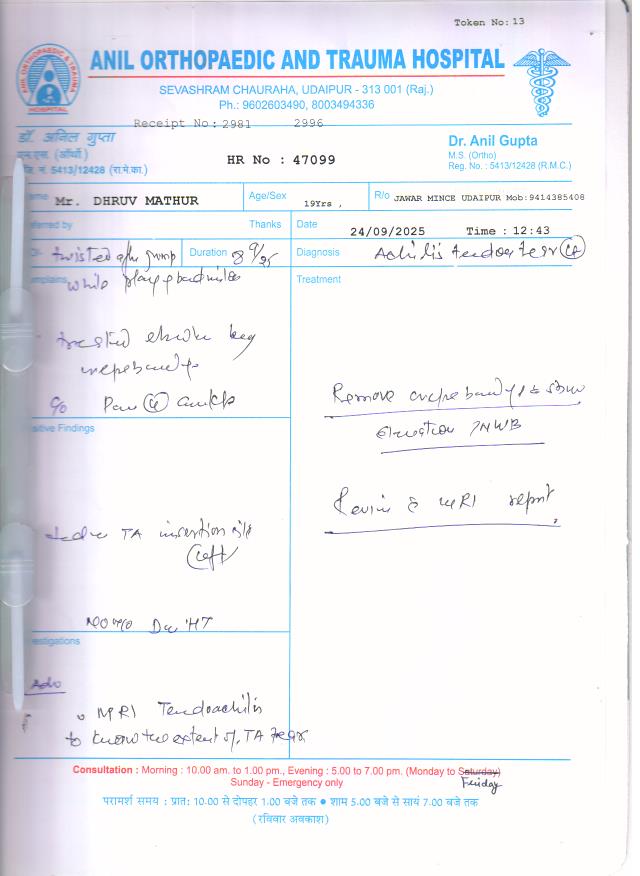 Token No: 13
ANIL ORTHOPAEDIC & TRAUMA HOSPITAL
ANIL ORTHOPAEDIC AND TRAUMA HOSPITAL
SEVASHRAM CHAURAHA, UDAIPUR - 313 001 (Raj.)
Ph.: 9602603490, 8003494336
Receipt No: 2981 2996
डॉ. अनिल गुप्ता
एम.एस. (ऑर्थो)
नं. 5413/12428 (रा.मे.का.)
HR No : 47099
Dr. Anil Gupta
M.S. (Ortho)
Reg. No. : 5413/12428 (R.M.C.)
ame Mr. DHRUV MATHUR
Age/Sex 19Yrs ,
R/o JAWAR MINCE UDAIPUR Mob:9414385408
ferred by Thanks
Date 24/09/2025 Time : 12:43
twisted after jump
Duration 8/9/25
Diagnosis Achilis tendon tear (Lt)
mplaints while play badminton
Treatment
treated
c/o Pain (Lt) ankle
sitive Findings
Remove & shoe
elevation /NWB
Review c MRI report
TA insertion site
(Left)
No H/o DM HT
estigations
Adv
MRI Tendoachilis
to know the extent of TA tear
Consultation : Morning : 10.00 am. to 1.00 pm., Evening : 5.00 to 7.00 pm. (Monday to Saturday)
Friday
Sunday - Emergency only
परामर्श समय : प्रात: 10.00 से दोपहर 1.00 बजे तक ● शाम 5.00 बजे से सायं 7.00 बजे तक
(रविवार अवकाश)